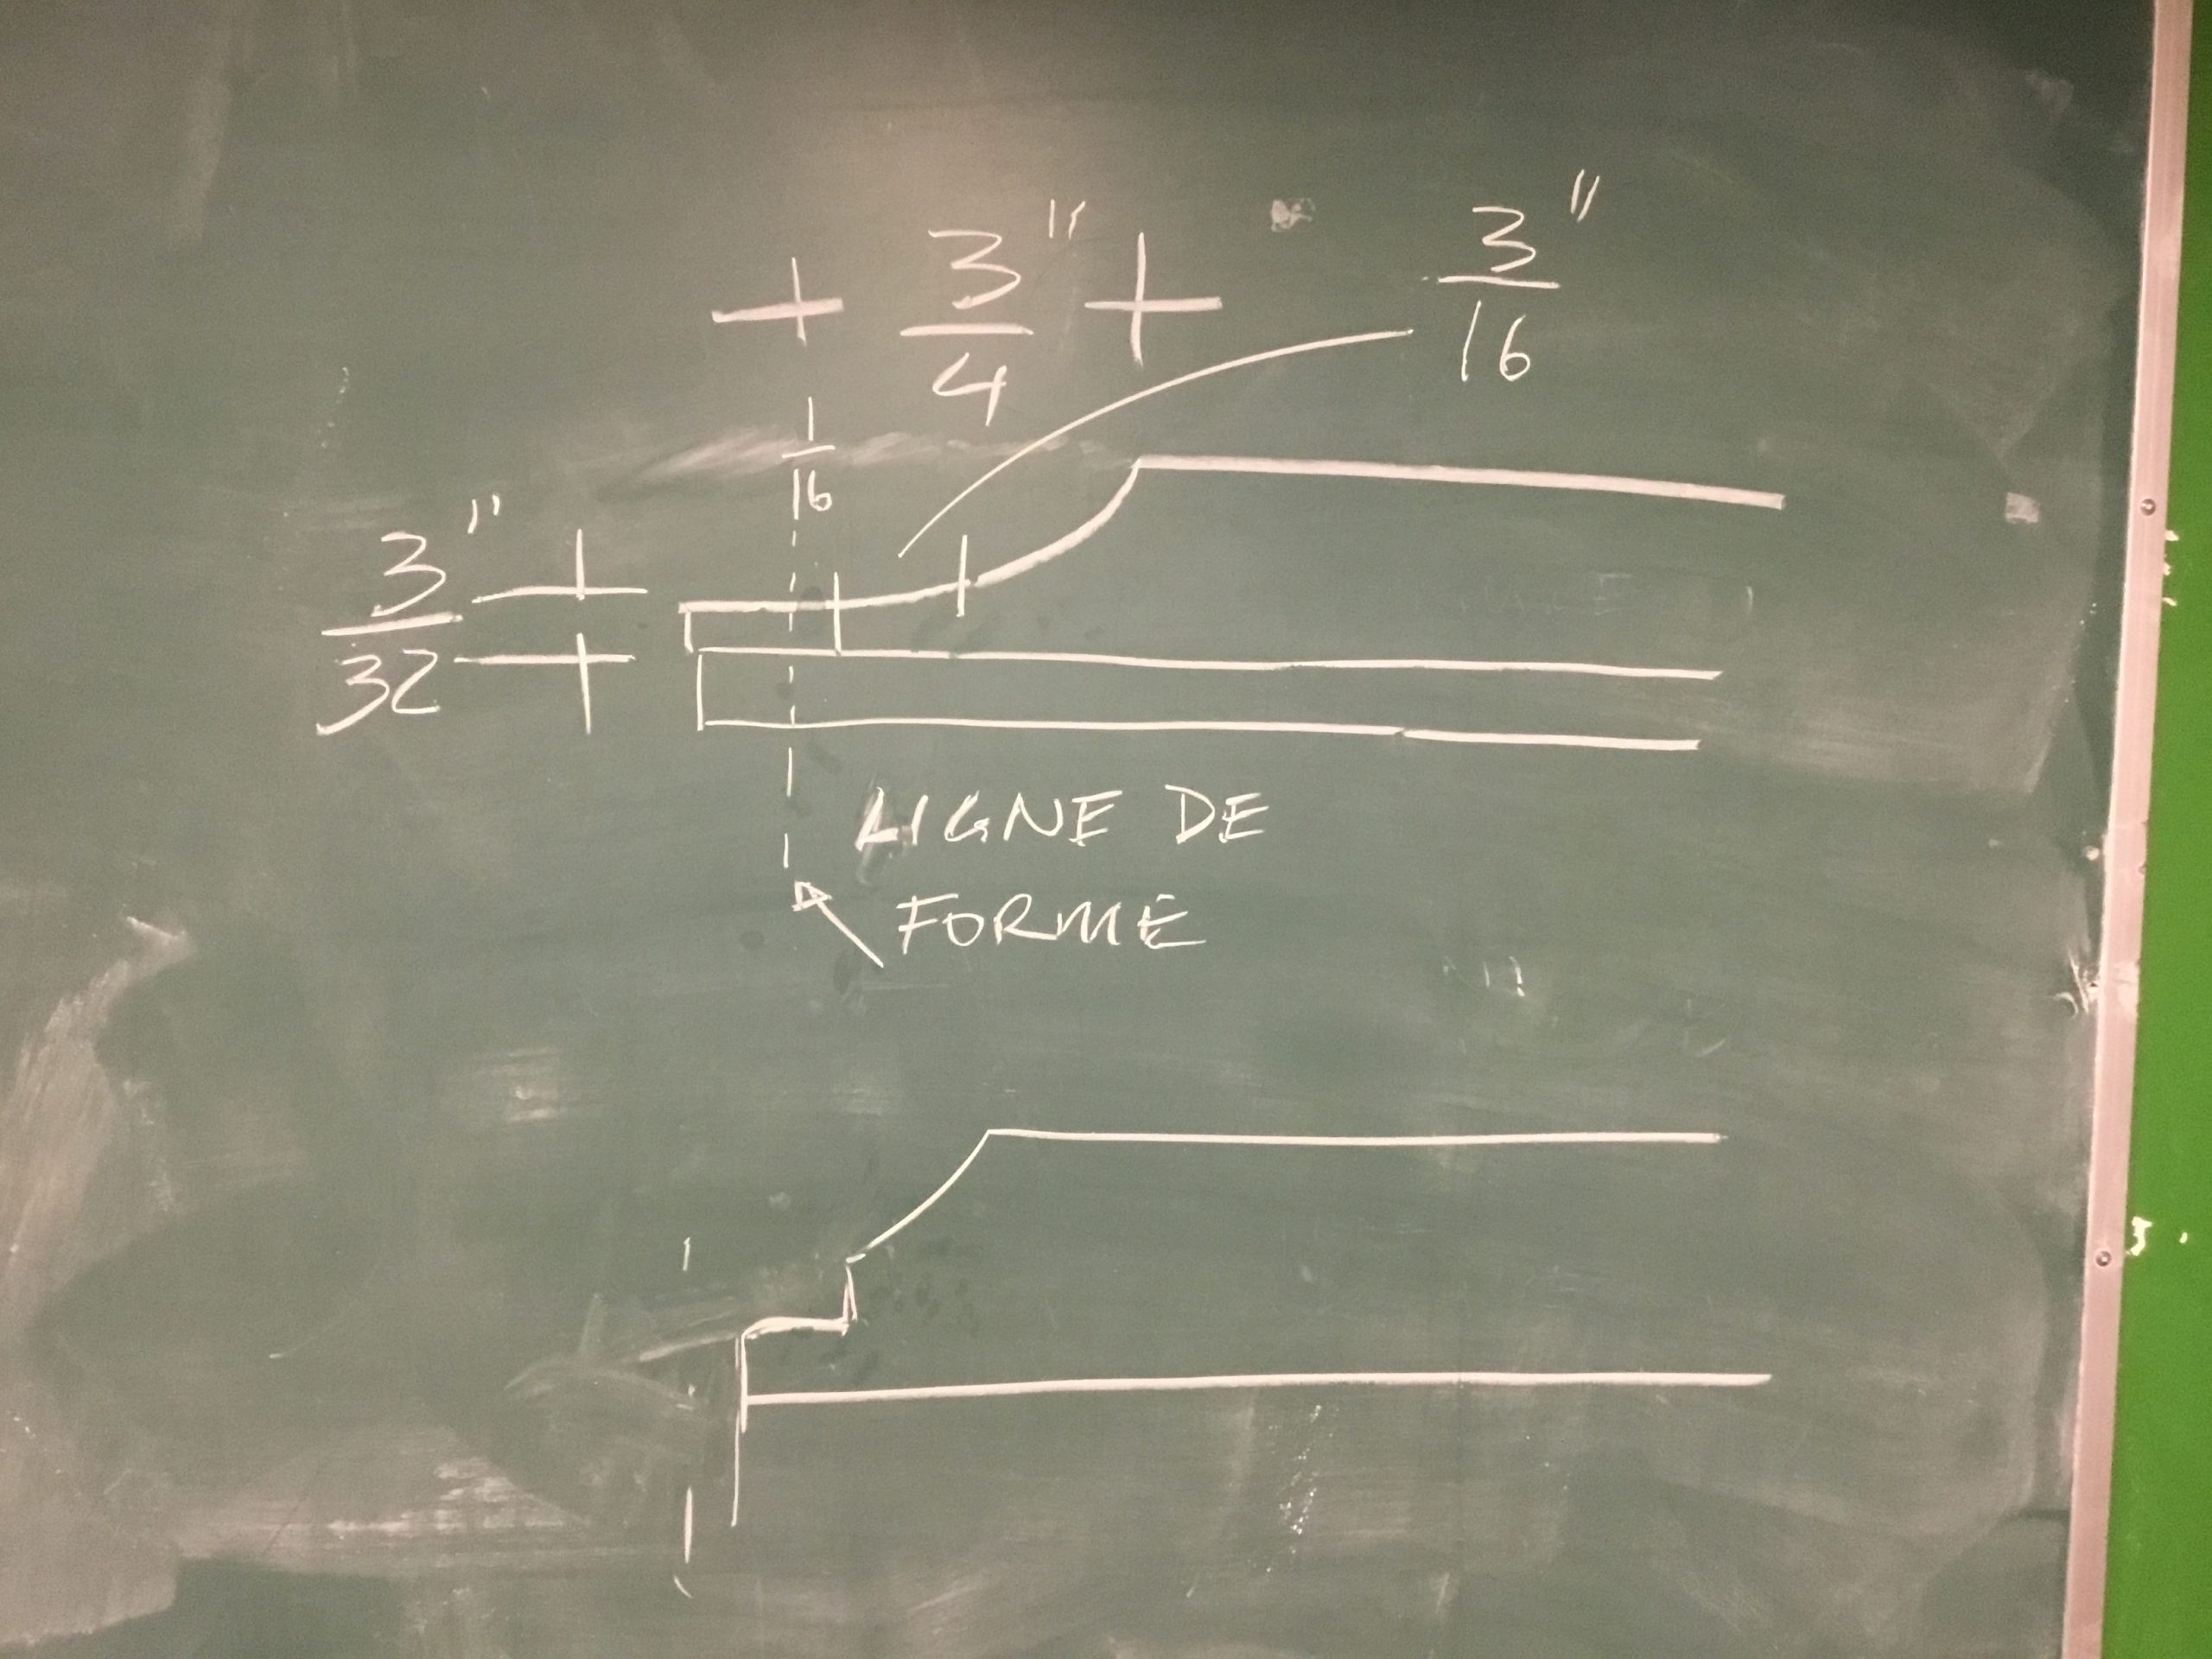 3"/4
3"/16
1/16
3"/32
LIGNE DE
FORME